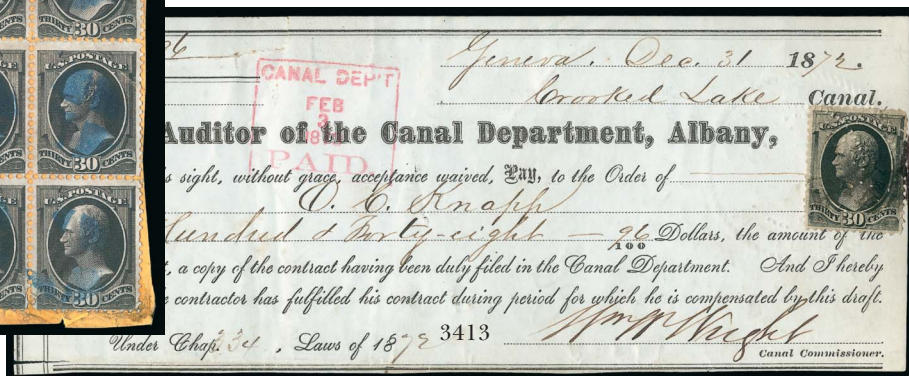 CENTS THIRTY 30 CENTS
U.S. POSTAGE
THIRTY 30 CENTS
U.S. POSTAGE
CENTS THIRTY 30 CENTS
6
Geneva. Dec. 31 1872.
Crooked Lake Canal.
CANAL DEP'T
FEB
3
PAID
Auditor of the Canal Department, Albany,
s sight, without grace, acceptance waived, Pay, to the Order of
O. C. Knapp
Hundred & Forty-eight — 96/100 Dollars, the amount of the
, a copy of the contract having been duly filed in the Canal Department. And I hereby
e contractor has fulfilled his contract during period for which he is compensated by this draft.
Under Chap. 334, Laws of 1872
3413
Wm W Wright
Canal Commissioner.
U.S. POSTAGE
THIRTY 30 CENTS